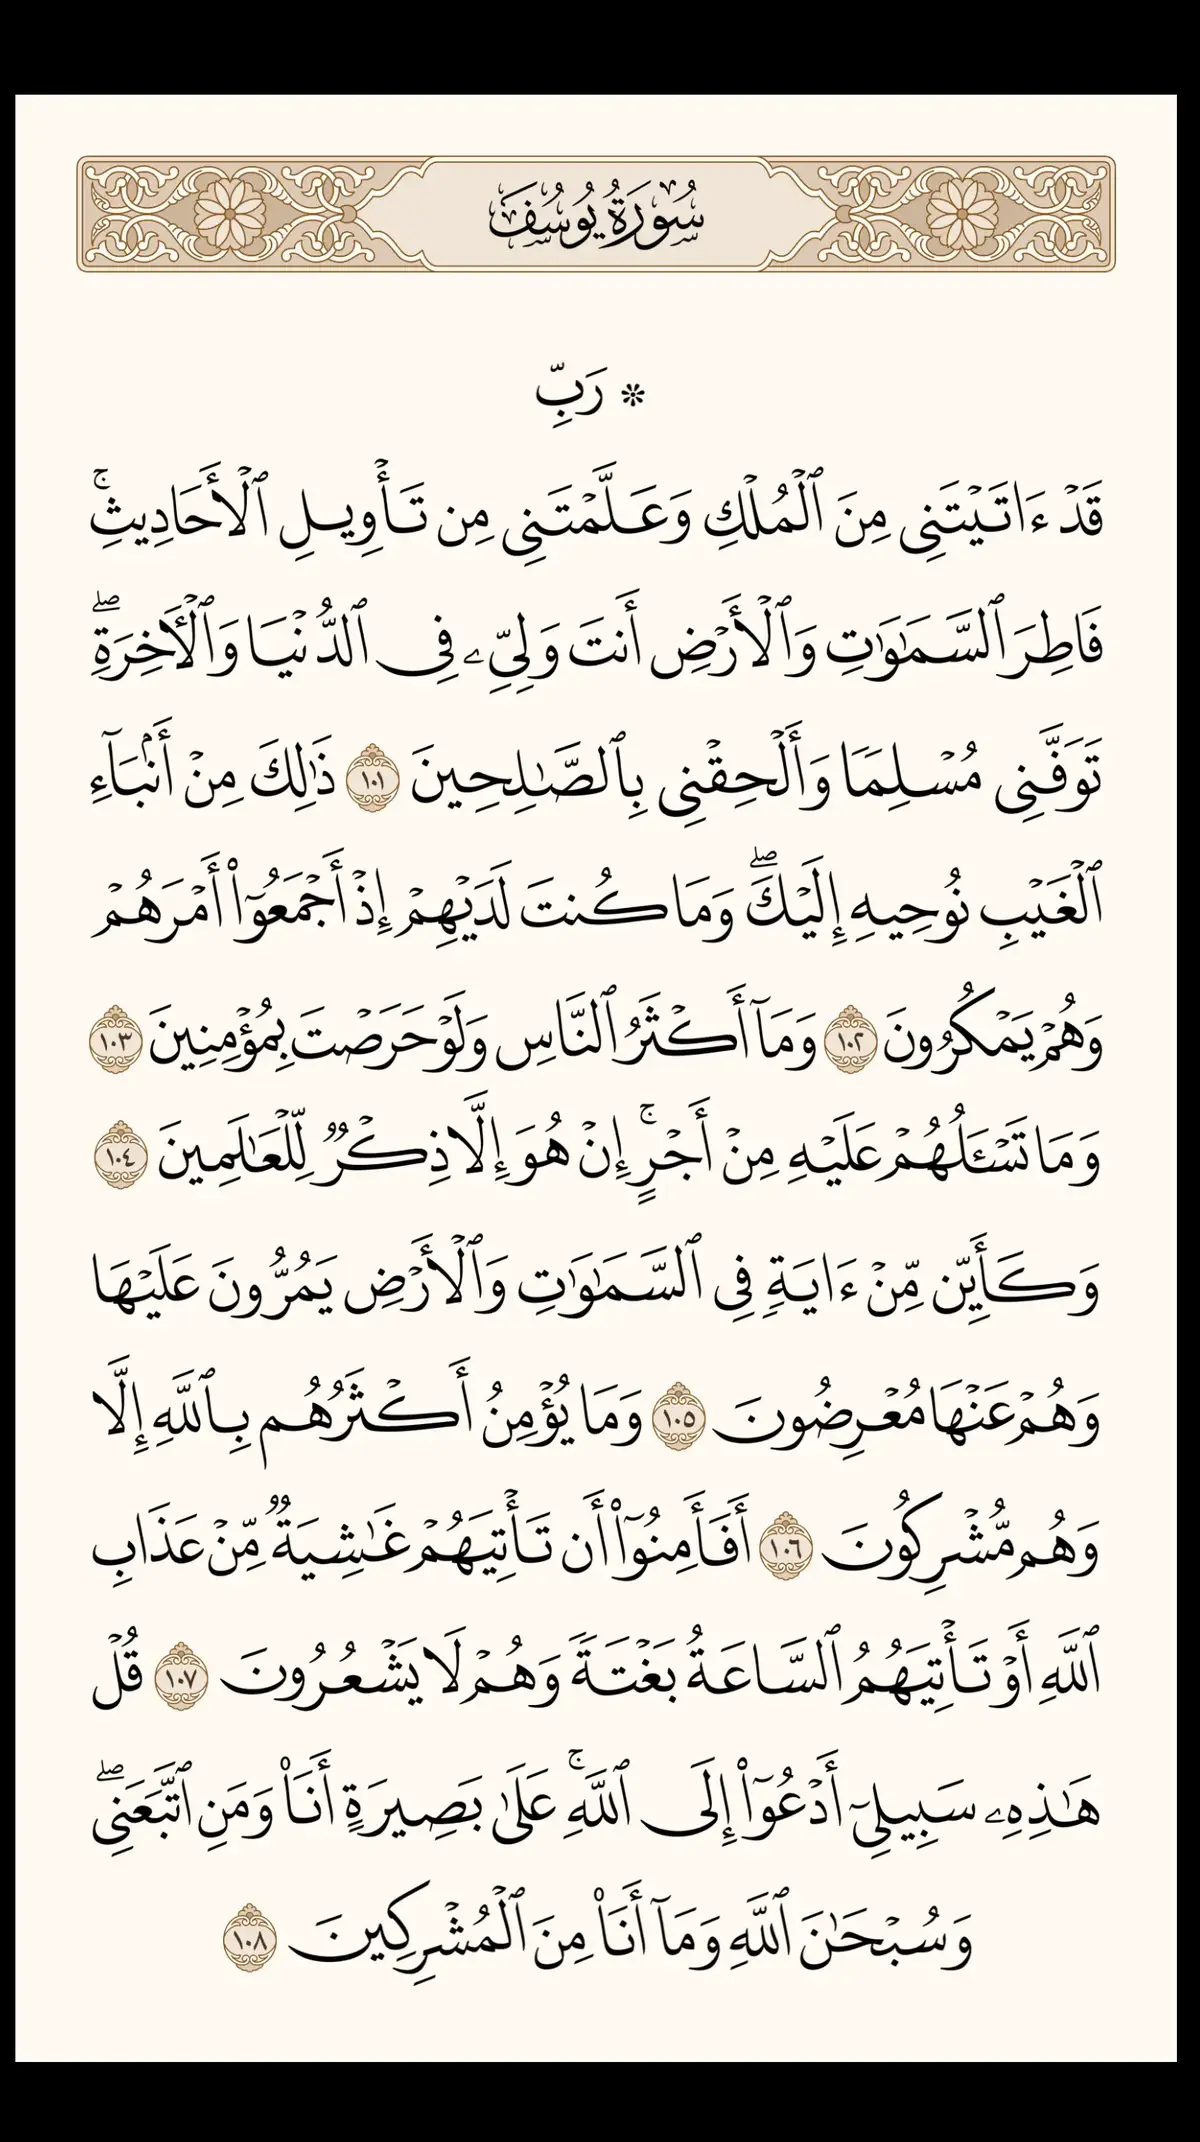 سُورَةُ يُوسُفَ
۞ رَبِّ
قَدۡ ءَاتَيۡتَنِي مِنَ ٱلۡمُلۡكِ وَعَلَّمۡتَنِي مِن تَأۡوِيلِ ٱلۡأَحَادِيثِۚ
فَاطِرَ ٱلسَّمَٰوَٰتِ وَٱلۡأَرۡضِ أَنتَ وَلِيِّۦ فِي ٱلدُّنۡيَا وَٱلۡأٓخِرَةِۖ
تَوَفَّنِي مُسۡلِمٗا وَأَلۡحِقۡنِي بِٱلصَّٰلِحِينَ ١٠١ ذَٰلِكَ مِنۡ أَنۢبَآءِ
ٱلۡغَيۡبِ نُوحِيهِ إِلَيۡكَۖ وَمَا كُنتَ لَدَيۡهِمۡ إِذۡ أَجۡمَعُوٓاْ أَمۡرَهُمۡ
وَهُمۡ يَمۡكُرُونَ ١٠٢ وَمَآ أَكۡثَرُ ٱلنَّاسِ وَلَوۡ حَرَصۡتَ بِمُؤۡمِنِينَ ١٠٣
وَمَا تَسۡـَٔلُهُمۡ عَلَيۡهِ مِنۡ أَجۡرٍۚ إِنۡ هُوَ إِلَّا ذِكۡرٞ لِّلۡعَٰلَمِينَ ١٠٤
وَكَأَيِّن مِّنۡ ءَايَةٖ فِي ٱلسَّمَٰوَٰتِ وَٱلۡأَرۡضِ يَمُرُّونَ عَلَيۡهَا
وَهُمۡ عَنۡهَا مُعۡرِضُونَ ١٠٥ وَمَا يُؤۡمِنُ أَكۡثَرُهُم بِٱللَّهِ إِلَّا
وَهُم مُّشۡرِكُونَ ١٠٦ أَفَأَمِنُوٓاْ أَن تَأۡتِيَهُمۡ غَٰشِيَةٞ مِّنۡ عَذَابِ
ٱللَّهِ أَوۡ تَأۡتِيَهُمُ ٱلسَّاعَةُ بَغۡتَةٗ وَهُمۡ لَا يَشۡعُرُونَ ١٠٧ قُلۡ
هَٰذِهِۦ سَبِيلِيٓ أَدۡعُوٓاْ إِلَى ٱللَّهِۚ عَلَىٰ بَصِيرَةٍ أَنَا۠ وَمَنِ ٱتَّبَعَنِيۖ
وَسُبۡحَٰنَ ٱللَّهِ وَمَآ أَنَا۠ مِنَ ٱلۡمُشۡرِكِينَ ١٠٨